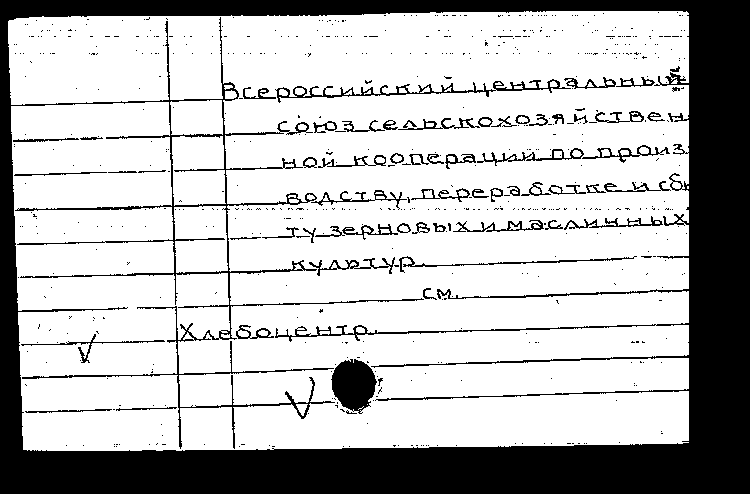 Всероссийский центральный
союз сельскохозяйствен
ной кооперации по произ
водству, переработке и сбы
ту зерновых и масличных
культур.
см.
Хлебоцентр.